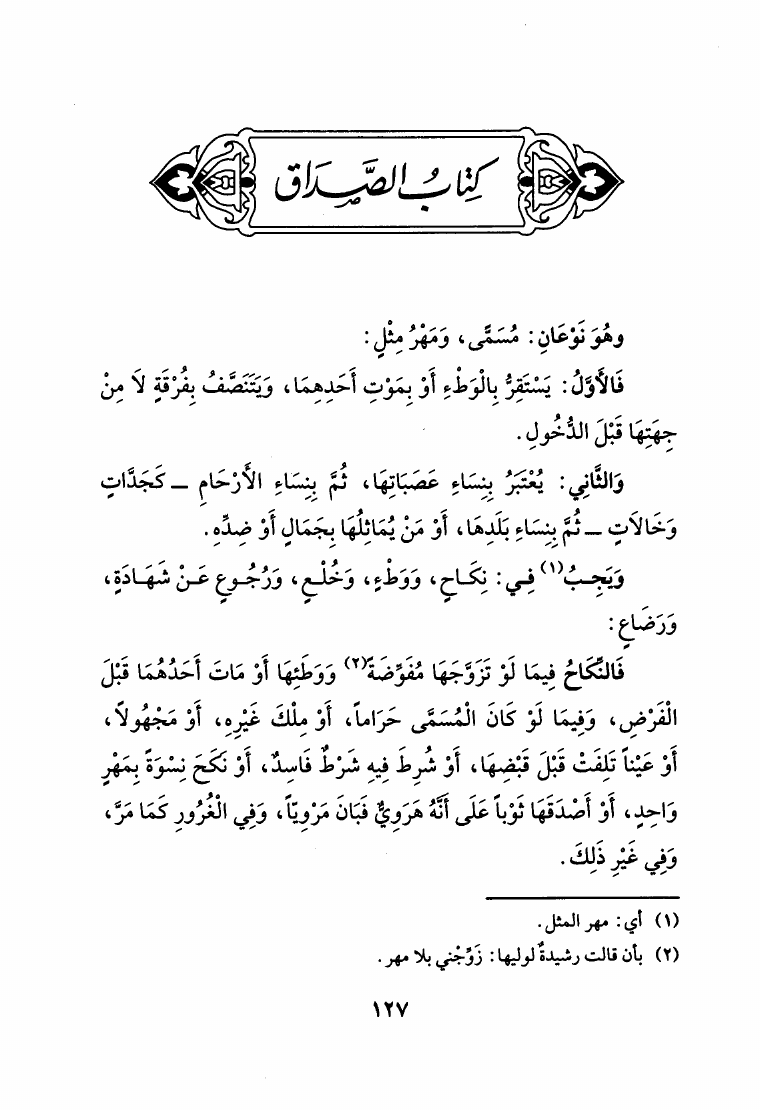 كِتَابُ الصَّدَاق
وهُوَ نَوْعَانِ: مُسَمًّى، وَمَهْرُ مِثْلٍ:
فَالأَوَّلُ: يَسْتَقِرُّ بِالْوَطْءِ أَوْ بِمَوْتِ أَحَدِهِمَا، وَيَتَنَصَّفُ بِفُرْقَةٍ لاَ مِنْ
جِهَتِهَا قَبْلَ الدُّخُولِ.
وَالثَّانِي: يُعْتَبَرُ بِنِسَاءِ عَصَبَاتِهَا، ثُمَّ بِنِسَاءِ الأَرْحَامِ ــ كَجَدَّاتٍ
وَخَالاَتٍ ــ ثُمَّ بِنِسَاءِ بَلَدِهَا، أَوْ مَنْ يُمَاثِلُهَا بِجَمَالٍ أَوْ ضِدِّهِ.
وَيَجِبُ(١) فِي: نِكَاحٍ، وَوَطْءٍ، وَخُلْعٍ، وَرُجُوعٍ عَنْ شَهَادَةٍ،
وَرَضَاعٍ:
فَالنِّكَاحُ فِيمَا لَوْ تَزَوَّجَهَا مُفَوِّضَةً(٢) وَوَطِئَهَا أَوْ مَاتَ أَحَدُهُمَا قَبْلَ
الْفَرْضِ، وَفِيمَا لَوْ كَانَ الْمُسَمَّى حَرَاماً، أَوْ مِلْكَ غَيْرِهِ، أَوْ مَجْهُولاً،
أَوْ عَيْناً تَلِفَتْ قَبْلَ قَبْضِهَا، أَوْ شُرِطَ فِيهِ شَرْطٌ فَاسِدٌ، أَوْ نَكَحَ نِسْوَةً بِمَهْرٍ
وَاحِدٍ، أَوْ أَصْدَقَهَا ثَوْباً عَلَى أَنَّهُ هَرَوِيٌّ فَبَانَ مَرْوِيّاً، وَفِي الْغُرُورِ كَمَا مَرَّ،
وَفِي غَيْرِ ذَلِكَ.
(١) أي: مهر المثل.
(٢) بأن قالت رشيدةٌ لوليها: زَوِّجْني بلا مهر.
١٢٧